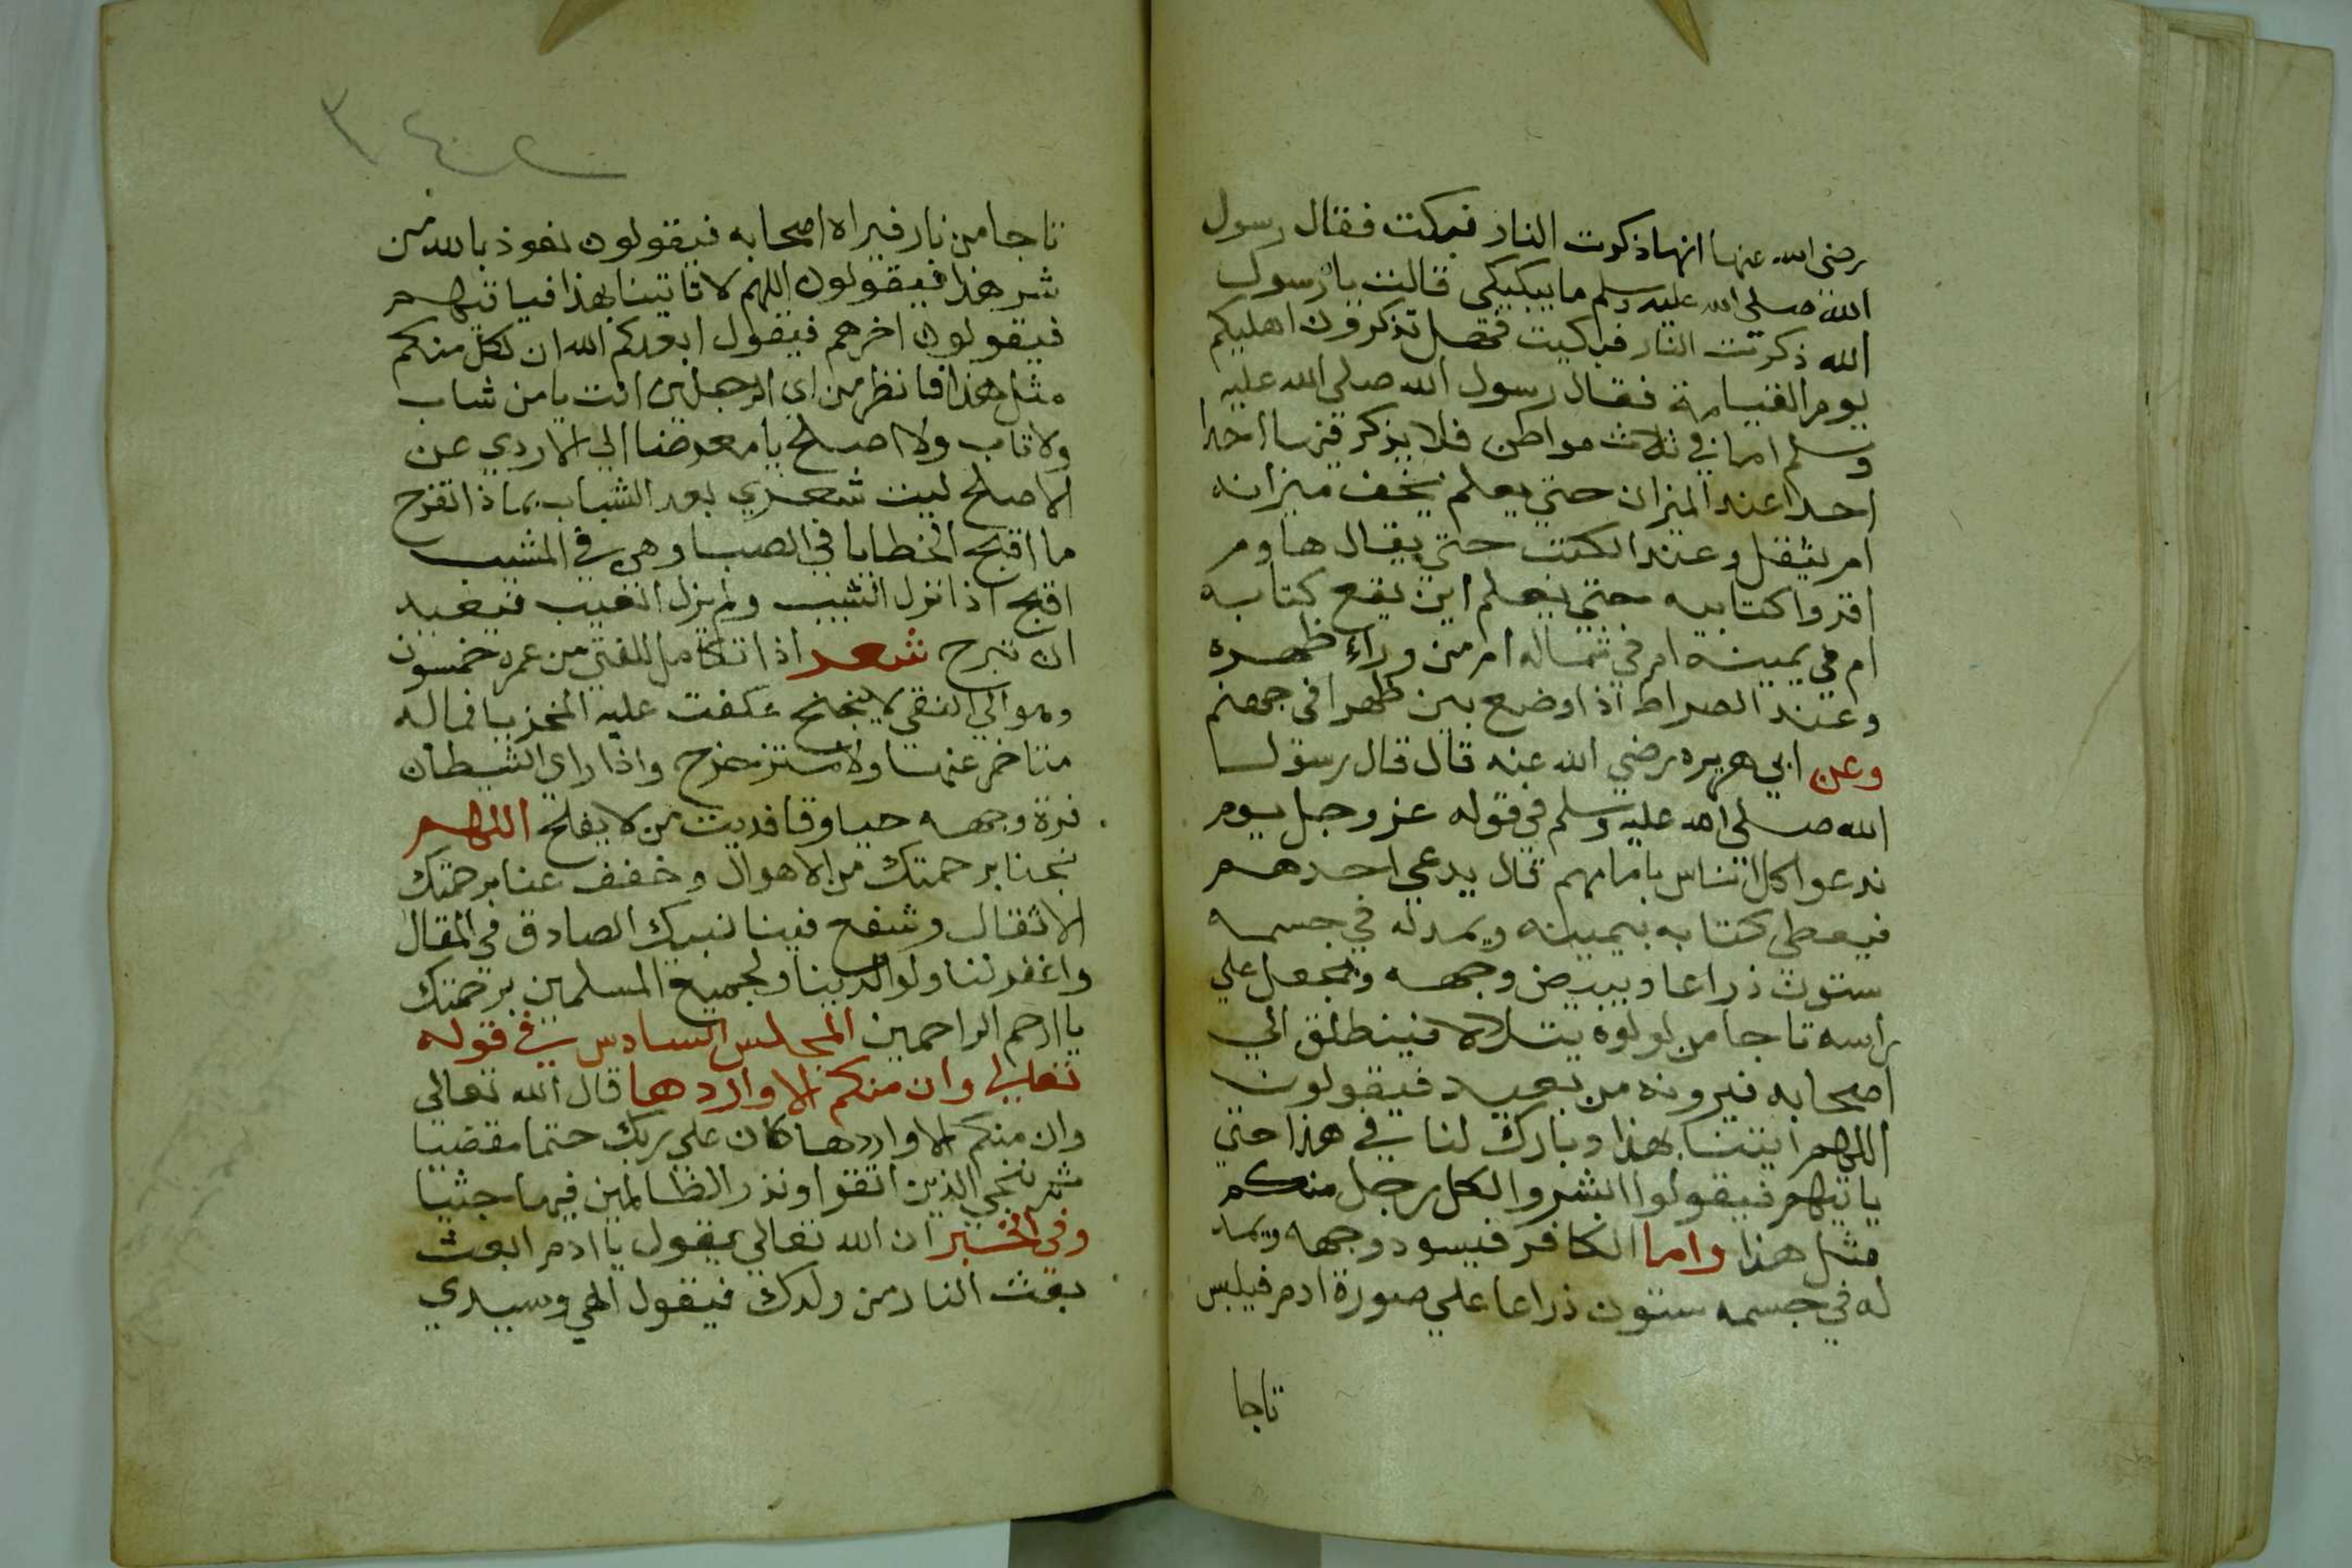 رضي الله عنها انها ذكرت النار فبكت فقال رسول
الله صلى الله عليه وسلم ما يبكيكي قالت يا رسول
الله ذكرت النار فبكيت فهل تذكرون اهليكم
يوم القيامة فقال رسول الله صلى الله عليه
وسلم اما في ثلاث مواطن فلا يذكر فيها احدا
احدا عند الميزان حتي يعلم يخف ميزانه
ام يثقل وعند الكتب حتي يقال هاوم
اقروا كتابيه حتي يعلم اين يقع كتابه
ام في يمينه ام في شماله ام من وراء ظهره
وعند الصراط اذا وضع بين ظهراني جهنم
وعن ابي هريره رضي الله عنه قال قال رسول
الله صلى الله عليه وسلم في قوله عز وجل يوم
ندعوا كل اناس بامامهم قال يدعي احدهم
فيعطى كتابه بيمينه ويمد له في جسمه
ستون ذراعا ويبيض وجهه ويجعل علي
راسه تاجا من لولوه يتلالا فينطلق الي
اصحابه فيرونه من بعيد فيقولون
اللهم ايتنا بهذا وبارك لنا في هذا حتي
ياتيهم فيقولوا ابشروا لكل رجل منكم
مثل هذا واما الكافر فيسود وجهه ويمد
له في جسمه ستون ذراعا علي صورة ادم فيلبس
تاجا
٣٤٢
تاجا من نار فيراه اصحابه فيقولون نعوذ بالله من
شر هذا فيقولون اللهم لا تاتينا بهذا فياتيهم
فيقولون اخرهم فيقول ابعدكم الله ان لكل منكم
مثل هذا فانظر من اي الرجلين انت يا من شاب
ولا تاب ولا اصلح يا معرضا الي الاردي عن
الاصلح ليت شعري بعد الشباب بماذا تفرح
ما اقبح الخطايا في الصبا وهي في المشيب
اقبح اذا نزل الشيب ولم يزل العيب فبعيد
ان تبرح شعر اذا تكامل للفتي من عمره خمسون
وهو الي التقي لا يجنح عكفت عليه المخزيا فماله
متاخر عنها ولا متزحزح واذا راي الشيطان
غرة وجهه حيا وقا فديت من لا يفلح اللهم
نجنا برحمتك من الاهوال وخفف عنا برحمتك
الاثقال وشفع فينا نبيك الصادق في المقال
واغفر لنا ولوالدينا ولجميع المسلمين برحمتك
يا ارحم الراحمين المجلس السادس في قوله
تعالى وان منكم الا واردها قال الله تعالى
وان منكم الا واردها كان علي ربك حتما مقضيا
ثم ننجي الذين اتقوا ونذر الظالمين فيها جثيا
وفي الخبر ان الله تعالي يقول يا ادم ابعث
بعث النار من ولدك فيقول الهي وسيدي